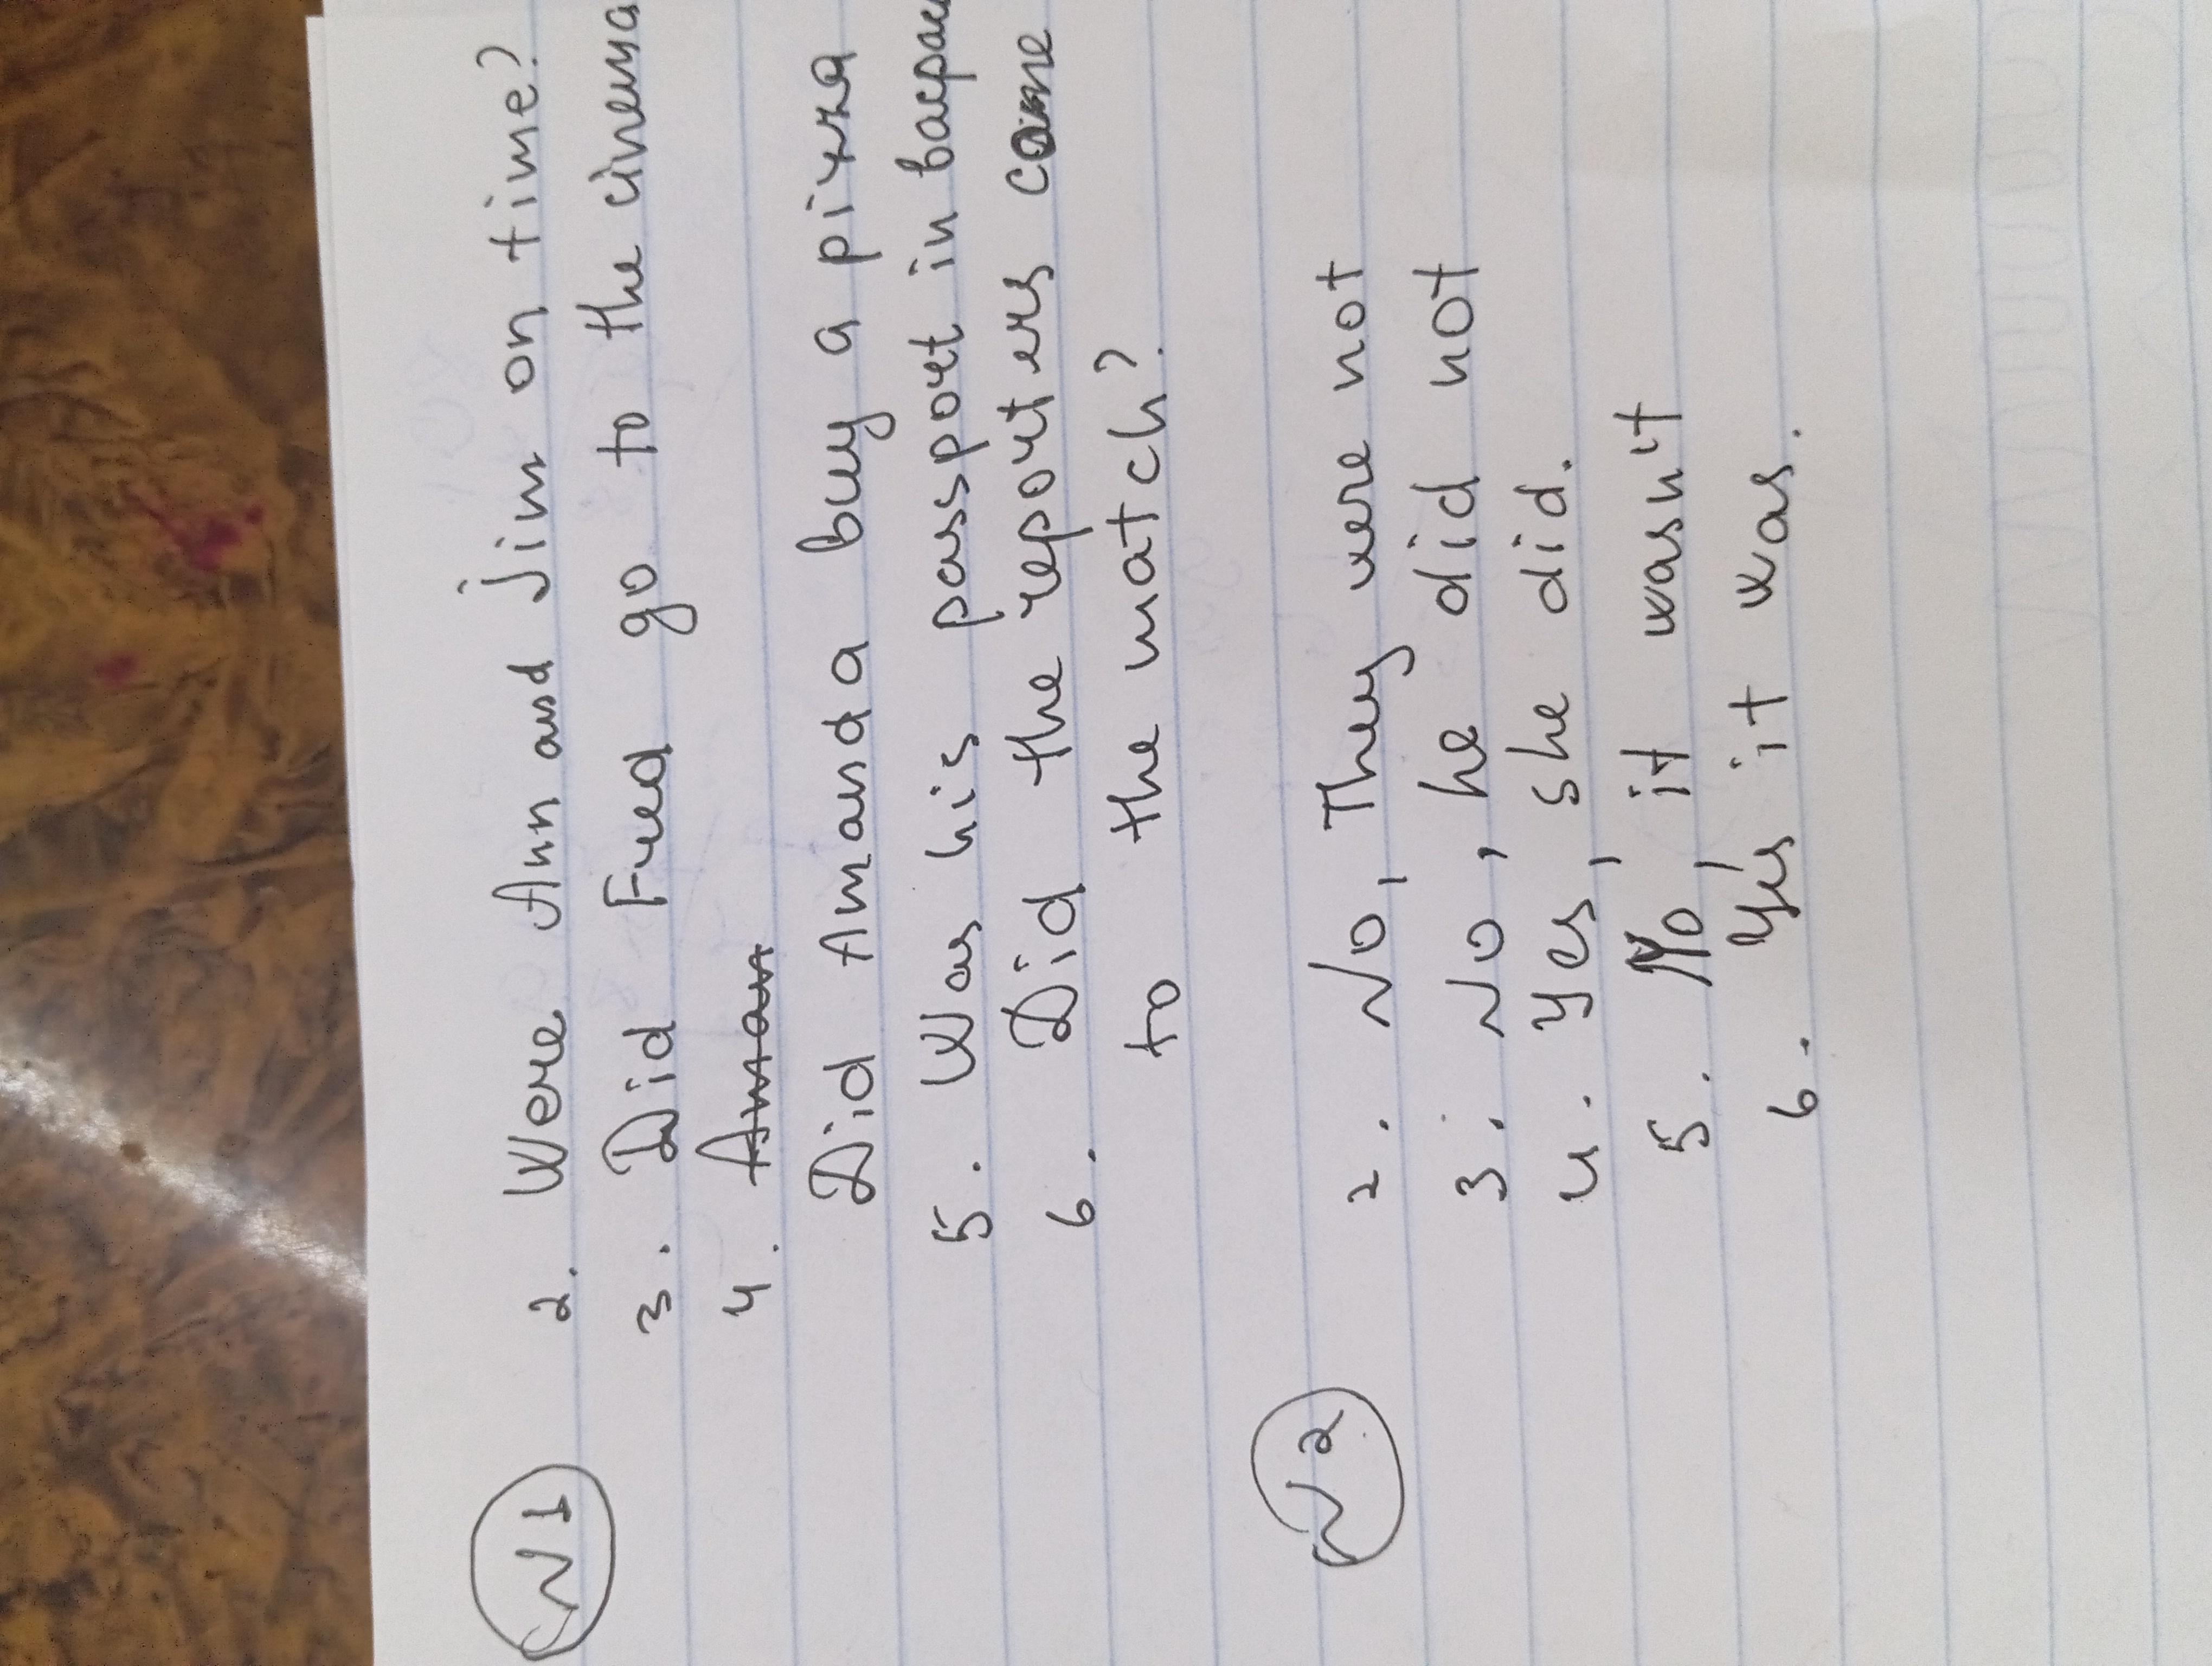 N1
2. Were Ann and Jim on time?
3. Did Fred go to the cinema
4. Aman
Did Amanda buy a pizza
5. Was his passport in bacpac
6. Did the reporters come
to the match?
N2
2. No, They were not
3. No, he did not
4. Yes, she did.
5. No, it wasn't
6. Yes it was.